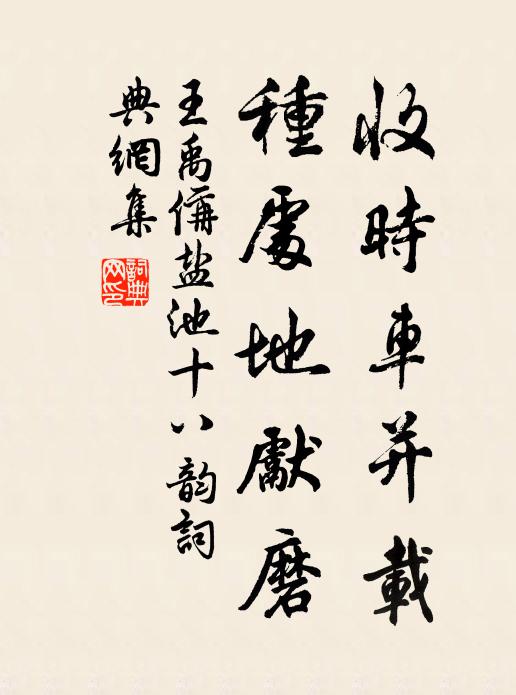 收時車并載
種處地獻磨
王禹偁盐池十八韵詞
典網集
詞典
网印